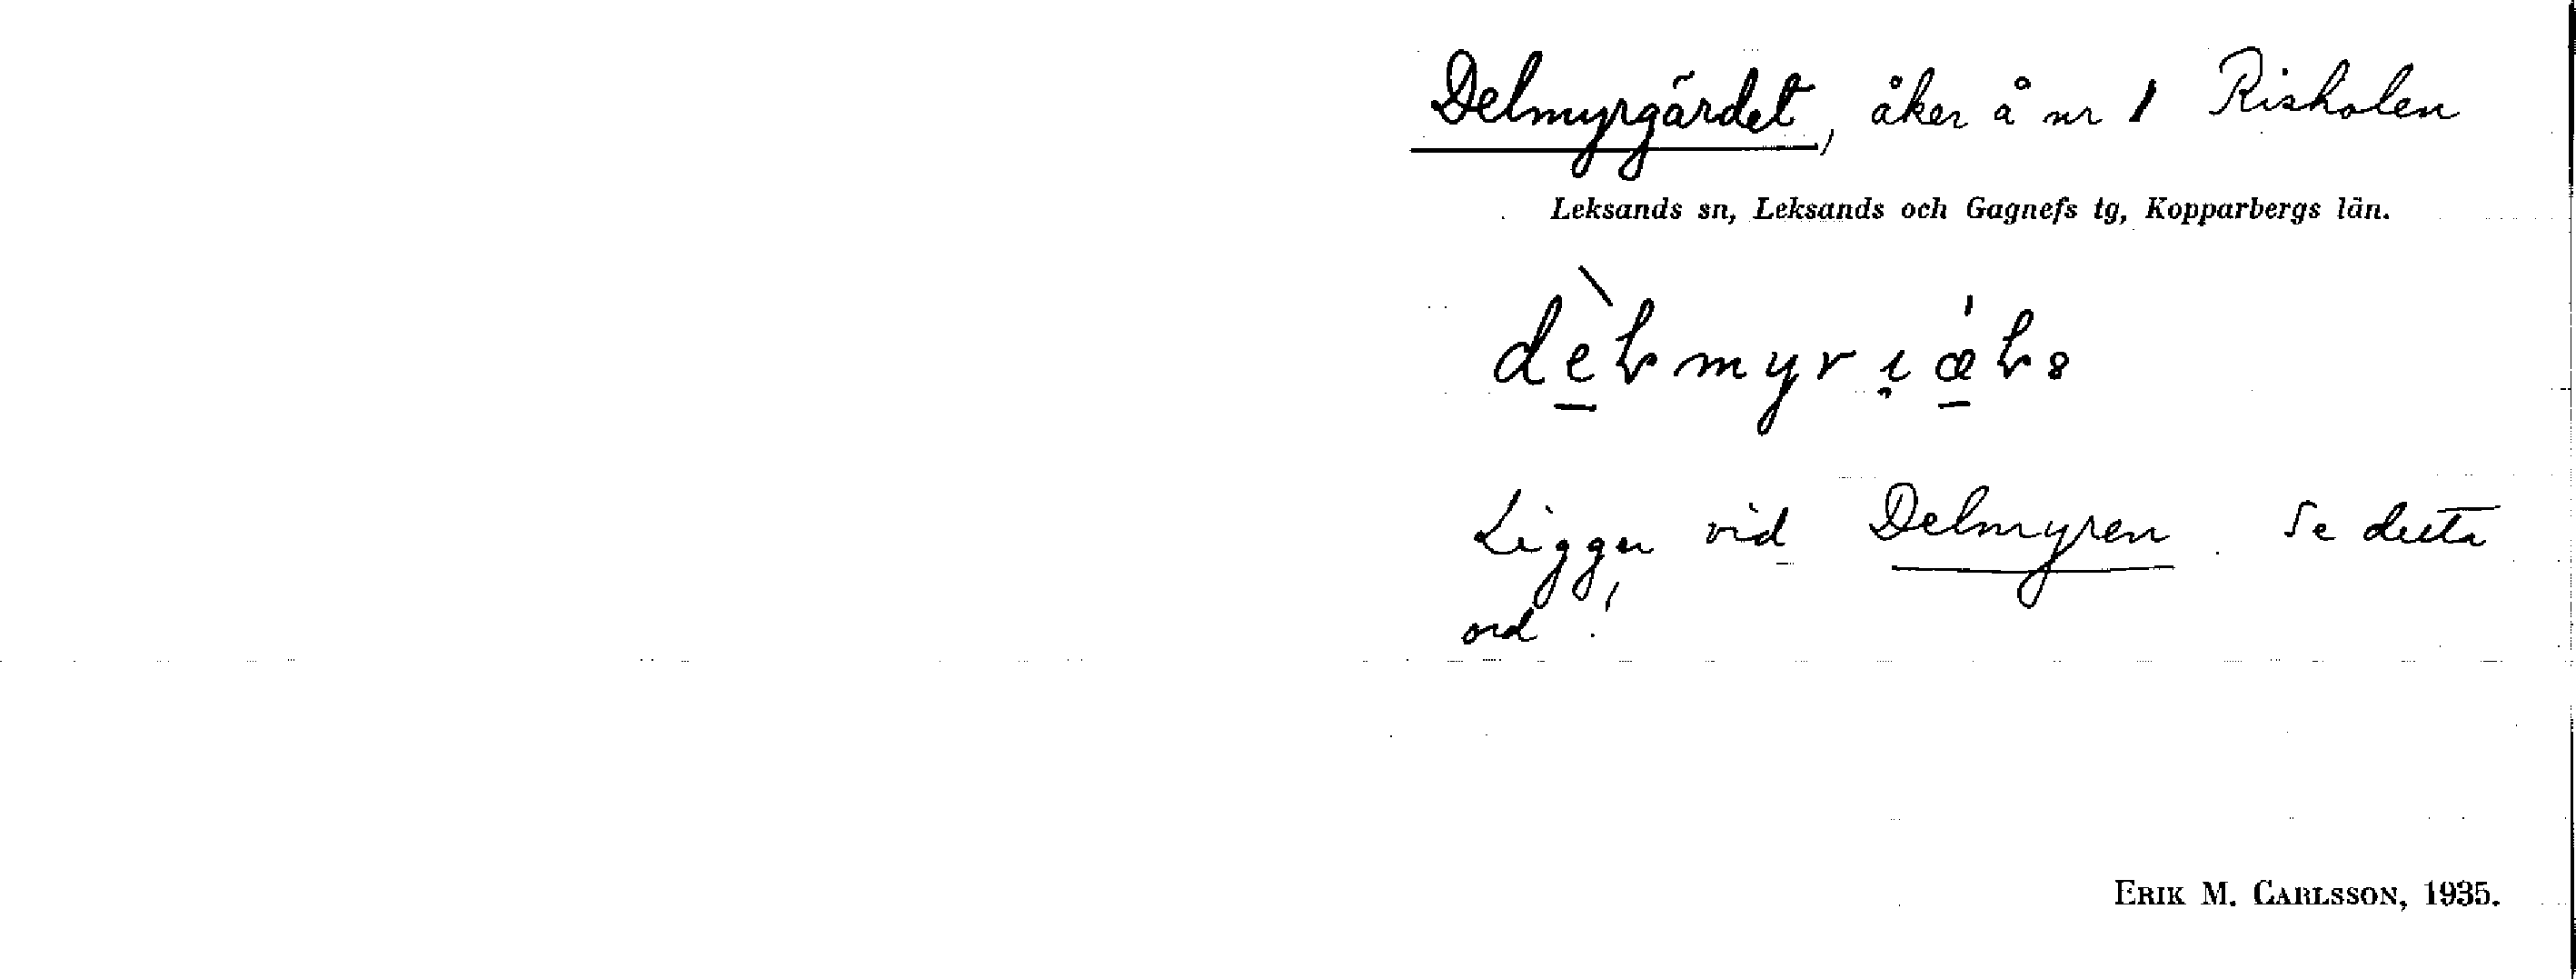 Delmyrgärdet, åker å nr 1 Risholen
Leksands sn, Leksands och Gagnefs tg, Kopparbergs län.
Ligger vid Delmyren. Se detta
ord!
ERIK M. CARLSSON, 1935.